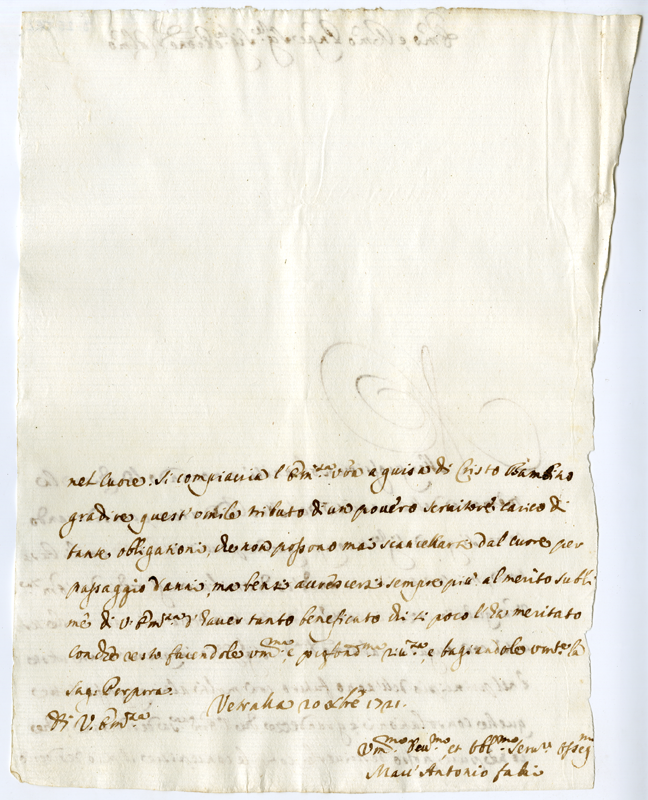 nel cuore. Si compiaccia l'Em.za v'ra a guisa di Cristo Bambino
gradire quest'umile tributo di un povero servitore carico di
tante obligationi, che non possono mai scancellarsi dal cuore per
passaggio d'anni, ma bensi accrescersi sempre più al merito subli
me di V. Em.za d'haver tanto beneficato chi si poco l'ha meritato
con che resto facendole um.ma, e profond.ma riv.za, e bagiandole um.te la
Sag. Porpora.
Vetralla 20 xbre 1721.
Di V. Em.za
Um.mo Dev.mo, et Obl.mo Serv.re Osseq.m
Marc'Antonio fabi